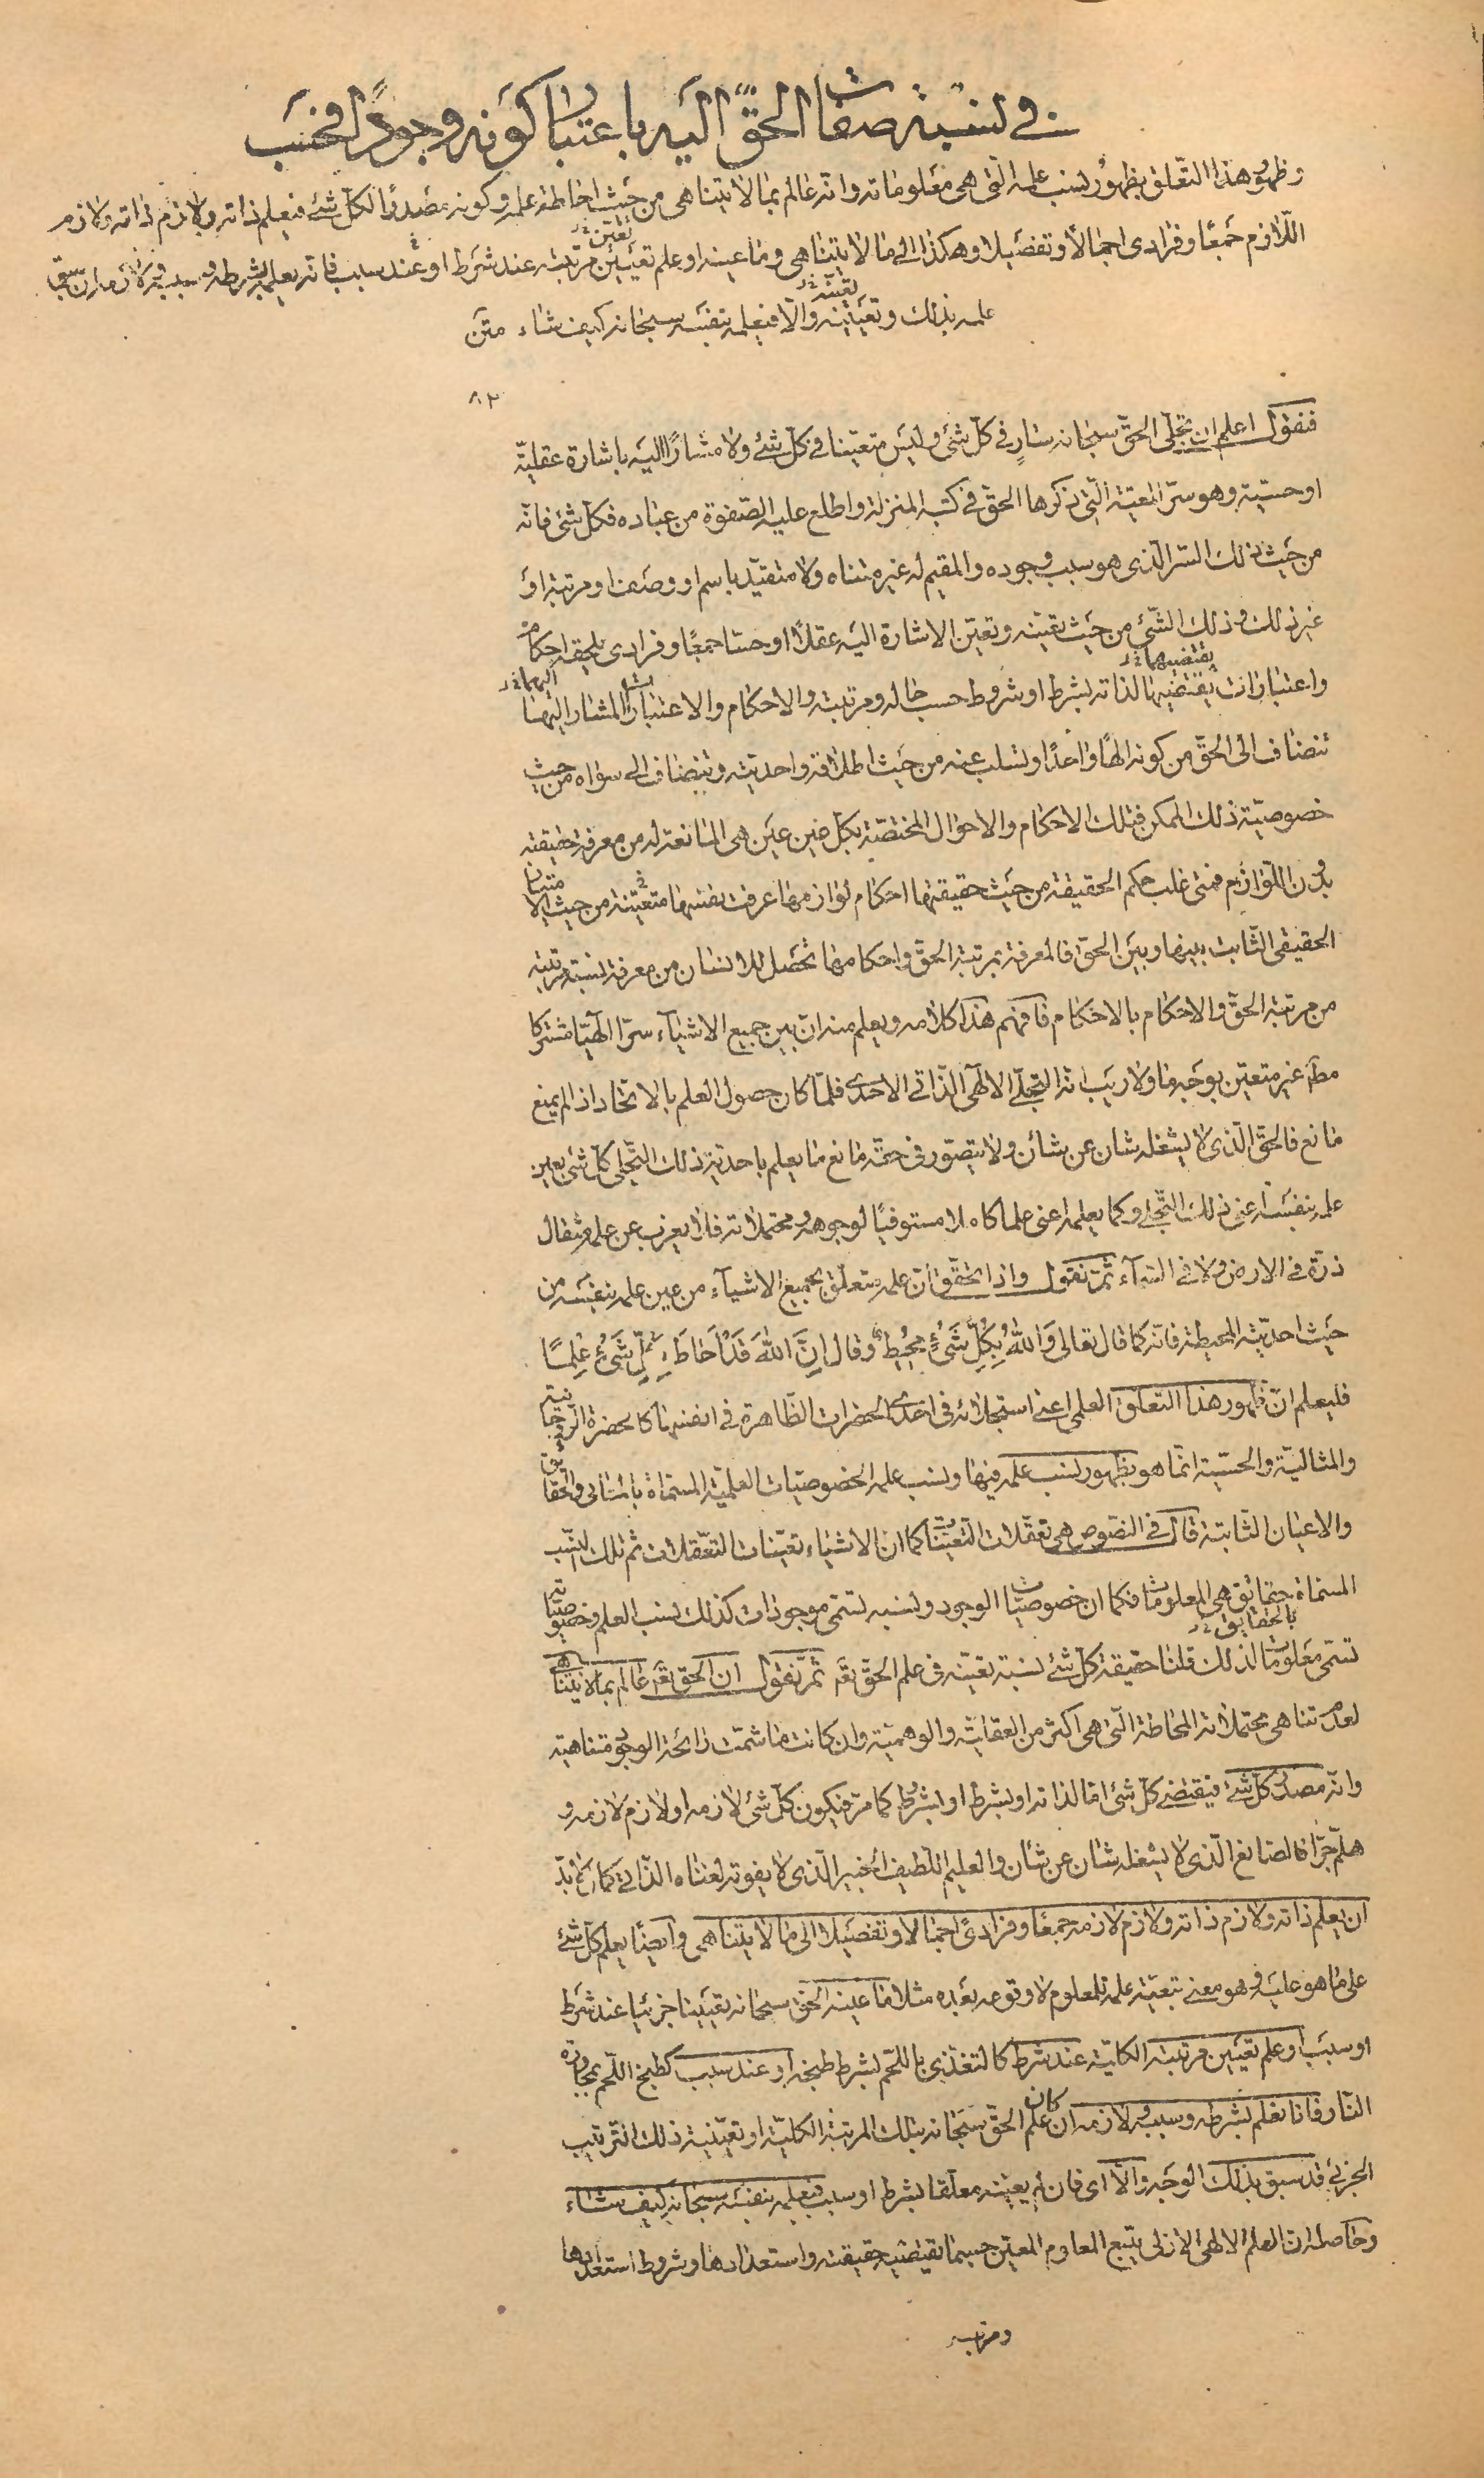 في نسبة صفات الحقّ اليه باعتبار كونه وجودًا فحسب
وظهور هذا التعلق بظهور نسب علمه التي هي معلوماته وانه عالم بما لا يتناهى من حيث احاطة علمه وكونه مصدرًا لكل شئ فيعلم ذاته ولازم ذاته ولازم
اللازم جمعًا وفرادى اجمالًا وتفصيلا وهكذا الى ما لا يتناهى وما عينه او علم تعيين تعين مرتبته عند شرط او عند سبب فانه يعلمه بشرطه وسببه ولازمه ان سبق
علمه بذلك وتعيينه تعينه والا فيعلمه بنفسه سبحانه كيف شاء متن
٨٢
فنقول اعلم ان تجلى الحقّ سبحانه سارٍ في كلّ شئ وليس متعيّنا في كل شئ ولا مشارًا اليه باشارة عقليّة
او حسّية وهو سرّ المعيّة التي ذكرها الحقّ في كتبه المنزلة واطلع عليه الصفوة من عباده فكل شئ فانه
من حيث ذلك السّر الّذى هو سبب وجوده والمقيم له غير متناه ولا متقيّد باسم او وصف او مرتبة او
غير ذلك وذلك الشّئ من حيث تعيّنه وتعيّن الاشارة اليه عقلًا او حسّا جمعًا وفرادى يلحقه احكام
واعتبارات يقتضيها يقتضيهما لذاته بشرط او شروط حسب حاله ومرتبته والاحكام والاعتبارات المشار اليها اليهما
تنضاف الى الحقّ من كونه الهًا واحدًا وتسلب عنه من حيث اطلاقه واحديّته وتنضاف الى سواه من حيث
خصوصيّة ذلك الممكن فتلك الاحكام والاحوال المختصّة بكل عين عين هى المانعة له من معرفة حقيقته
بدون اللّوازم فمتى غلب حكم الحقيقة من حيث حقيقتها احكام لوازمها عرفت نفسها متعيّنة من حيث الامتياز
الحقيقى الثّابت بينها وبين الحقّ فالمعرفة بمرتبة الحقّ واحكامها تحصل للانسان من معرفة نسبة مرتبته
من مرتبة الحقّ والاحكام بالاحكام فافهم هذا كلامه ويعلم منه ان بين جميع الاشياء سرّا الٓهيّا مشتركا
مطلقا غير متعيّن بوجه ما ولا ريب انّه التجلّى الالٓهى الذّاتى الاحدى فلمّا كان حصول العلم بالاتحاد اذا لم يمنع
مانع فالحقّ الّذى لا يشغله شان عن شان ولا يتصوّر في حقّه مانع ما يعلم باحديّة ذلك التجلى كلّ شئ بعين
علمه بنفسه اعنى ذلك التّجلى وكما يعلمه اعنى علما كاملا مستوفيًا لوجوهه ومحتملاته فلا يعزب عن علمه مثقال
ذرّة في الارض ولا في السّمآء ثمّ نقول واذا تحقّق انّ علمه متعلّق بجميع الاشيآء من عين علمه بنفسه من
حيث احديّته المحيطة فانّه كما قال تعالى وَاللّٰهُ بِكُلِّ شَىْءٍ مُحِيطٌ وقال اِنَّ اللّٰهَ قَدْ اَحَاطَ بِكُلِّ شَىْءٍ عِلْمًا
فليعلم انّ ظهور هذا التعلق العلمى اعنى استجلائه في احدى الحضرات الظّاهرة في انفسها كالحضرة الرّوحانيّة
والمثاليّة والحسّية انّما هو بظهور نسب علمه فيها ونسب علمه الخصوصيّات العلميّة المسمّاة بالمعانى والحقائق
والاعيان الثّابتة قال في النصّوص هى تعقّلات التّعيّنات كما ان الاشياء تعيّنات التعقّلات ثم تلك النسب
المسمّاة بحقائق بالحقايق هى المعلومات فكما ان خصوصيّات الوجود ونسبه تسمّى موجودات كذلك نسب العلم وخصوصيّاته
تسمّى معلومات لذلك قلنا حقيقة كل شئ نسبة تعيّنه في علم الحقّ تعٓ ثمّ نقول ان الحقّ تعٓ عالم بما لا يتناهى
لعدم تناهى محتملاته المحاطة الّتى هى اكثر من العقليّة والوهميّة وان كانت ما شمّت رائحة الوجود متناهية
وانّه مصدر كلّ شئ فيقتضى كلّ شئ امّا لذاته او بشرط او بشروط كما مرّ فيكون كلّ شئ لازمه او لازم لازمه و
هلمّ جرّا فالصّانع الّذى لا يشغله شان عن شان والعليم اللّطيف الخبير الّذى لا يفوته لغناه الذّاتى كمال لا بدّ
ان يعلم ذاته ولازم ذاته ولازم لازمه جمعًا وفرادىً اجمالا وتفصيلا الى ما لا يتناهى وايضًا يعلم كلّ شئ
على ما هو عليه وهو معنى تبعيّة علمه للمعلوم لا وقوعه بعده مثلا ما عينه الحقّ سبحانه تعيينا جزئيا عند شرط
او سبب او علم تعيين مرتبته الكليّة عند شرط كالتغذّى باللّحم بشرط طبخه او عند سبب كطبخ اللّحم بمجاورة
النّار فانا نعلم بشرطه وسببه ولازمه ان كان علم الحقّ سبحانه بتلك المرتبة الكليّة او تعيّنية ذلك الترتيب
الجزئى قد سبق بذلك الوجه والّا اى فان لم يعيّنه معلّقا بشرط او سبب فيعلمه بنفسه سبحانه كيف شاء
وحاصله ان العلم الالهى الازلى يتبع المعلوم المعيّن حسبما يقتضيه حقيقته واستعدادها وشروط استعدادها
ومرتبه